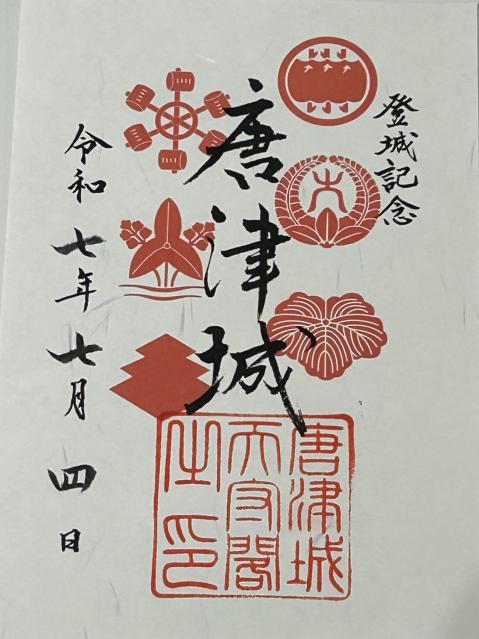 登城記念
唐津城
令和七年七月四日
唐津城
天守閣
之印